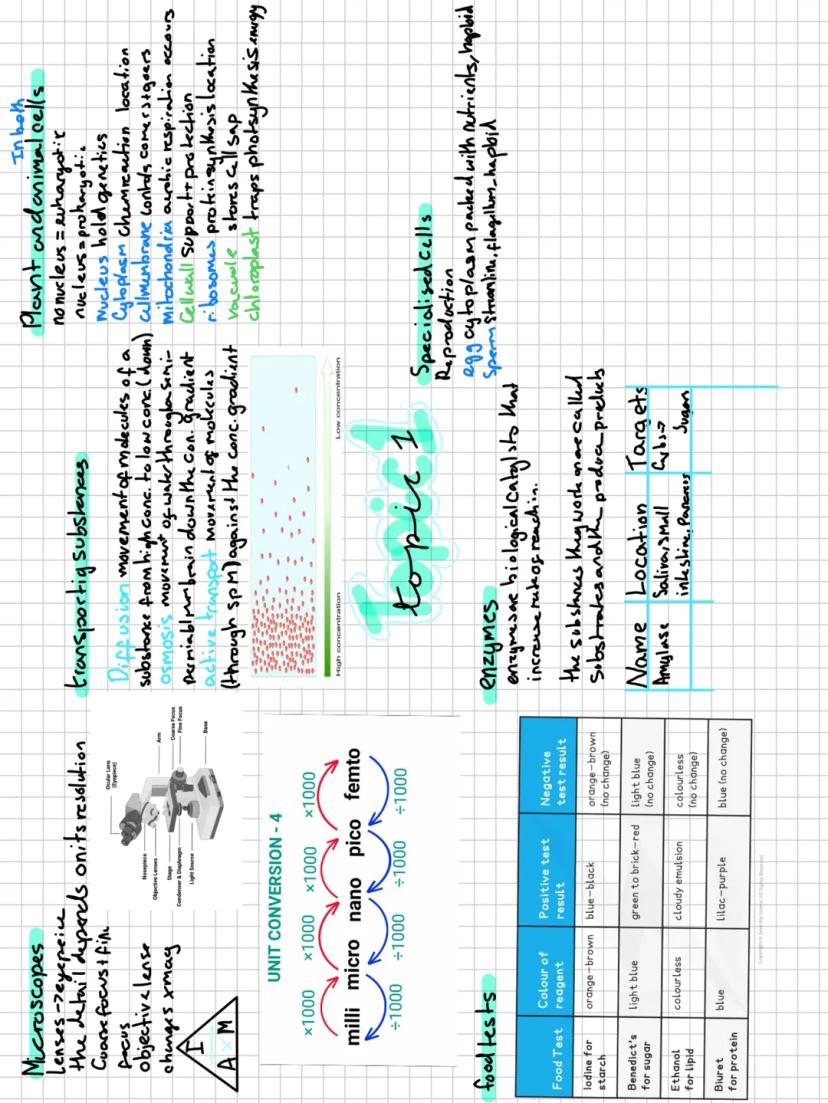 Microscopes
lenses->eyepeice
the detail depends on its resolution
Coarse focus + fine
focus
objective lense
changes x mag
I
A x M
Ocular Lens
(Eyepiece)
Nosepiece
Objective Lenses
Stage
Condenser & Diaphragm
Light Source
Arm
Coarse Focus
Fine Focus
Base
UNIT CONVERSION - 4
×1000 ×1000 ×1000 ×1000
milli micro nano pico femto
÷1000 ÷1000 ÷1000 ÷1000
food tests
Food Test Colour of reagent Positive test result Negative test result
Iodine for starch orange-brown blue-black orange-brown (no change)
Benedict's for sugar light blue green to brick-red light blue (no change)
Ethanol for lipid colourless cloudy emulsion colourless (no change)
Biuret for protein blue lilac-purple blue (no change)
transportig substances
Diffusion movement of molecules of a
substance from high conc. to low conc. (down)
osmosis movement of water through a semi-
permiabl membrain down the con. gradient
active transport movement of molecules
(through SPM) against the conc. gradient
High concentration
Low concentration
Topic 1
topic 1
enzymes
enzymes are biological catalysts that
increase rate of reaction.
the substances they work on are called
substrates and the produce products
Name Location Targets
Amylase Saliva, small
intestine, Pancreas
Sugars
Plant and animal cells
In both
no nucleus = eukaryotic
nucleus = prokaryotic
Nucleus hold genetics
Cytoplasm chem reaction location
Cell membrane controls comers + goers
Mitochondria aerobic respiration occurs
Cell wall support + protection
ribosomes protein synthisis location
Vacuole stores cell sap
chloroplast traps photsynthesis energy
Specialised cells
Reproduction
egg cytoplasm packed with nutrients, haploid
Sperm streamline, flagellum, haploid